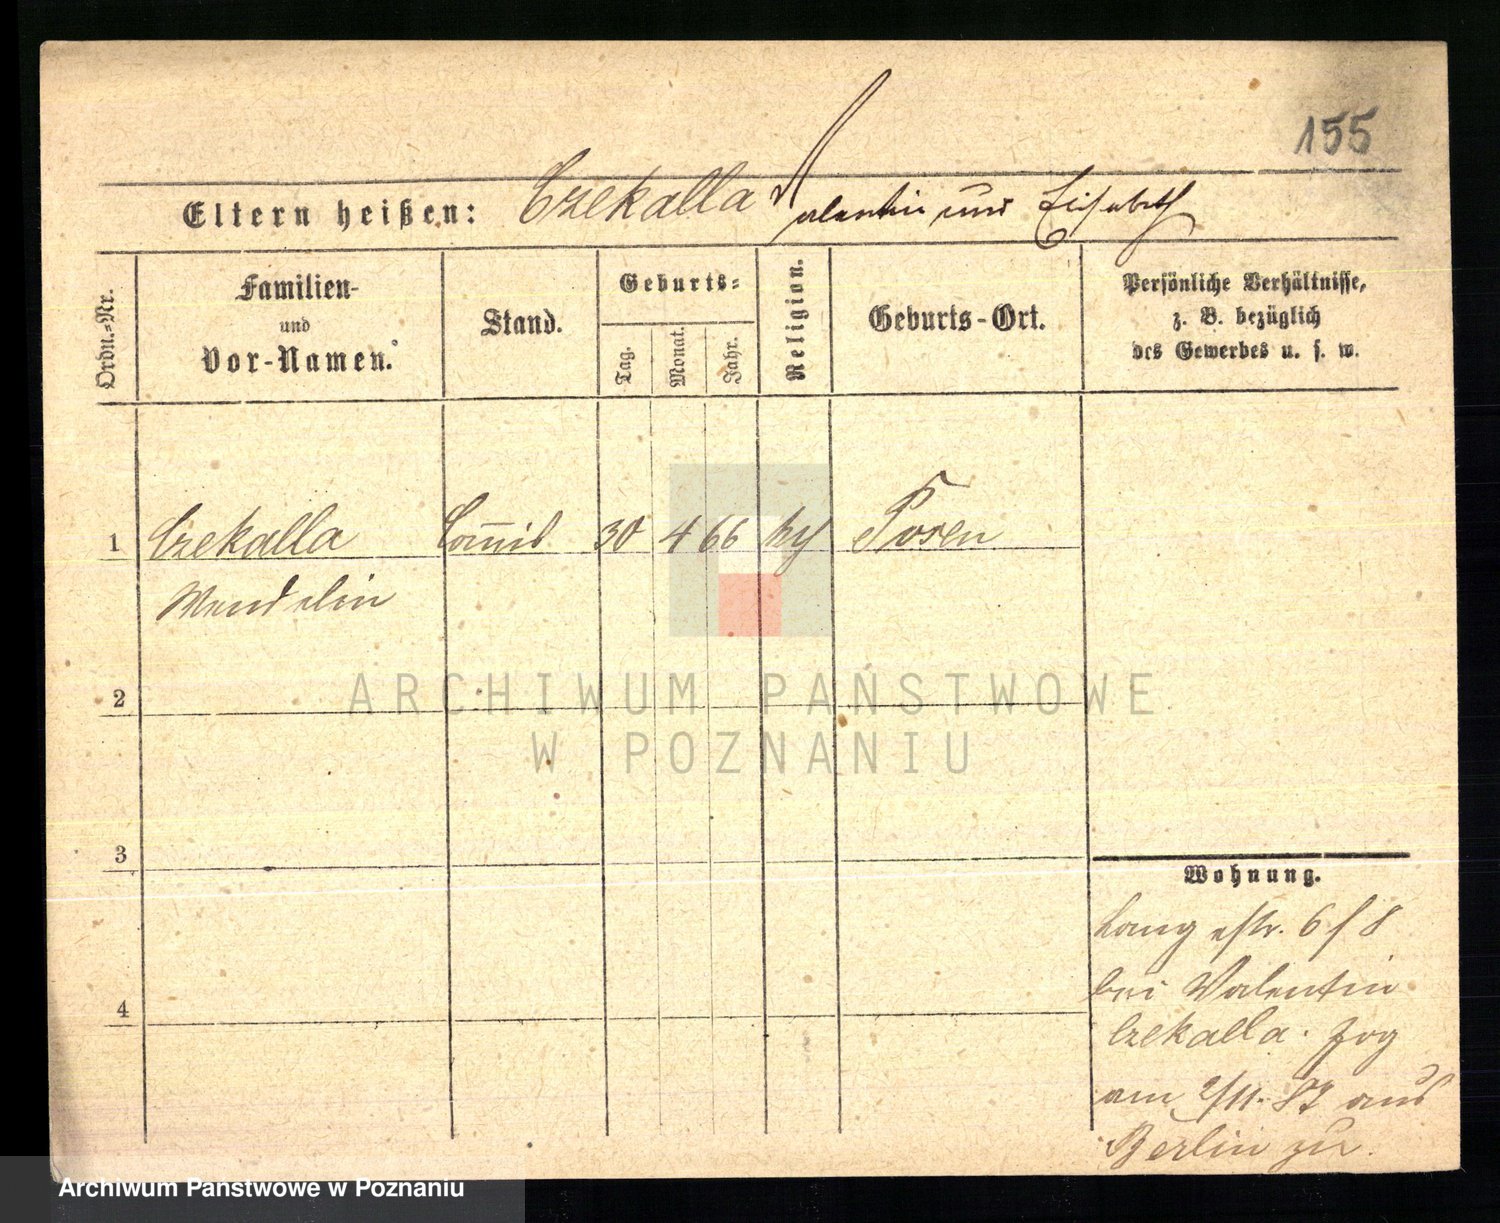 155
Eltern heißen: Czekalla Valentin und Elisabeth
Ordn.-Nr.
Familien-
und
Vor-Namen.
Stand.
Geburts-
Tag.
Monat.
Jahr.
Religion.
Geburts-Ort.
Persönliche Verhältnisse,
z. B. bezüglich
des Gewerbes u. s. w.
1 Czekalla Commis 30 4 66 Posen
Wendelin
2
3
4
Wohnung.
Langestr. 6/8
bei Valentin
Czekalla. Zog
am 2/11. 87 aus
Berlin zu.
ARCHIWUM PAŃSTWOWE
W POZNANIU
Archiwum Państwowe w Poznaniu